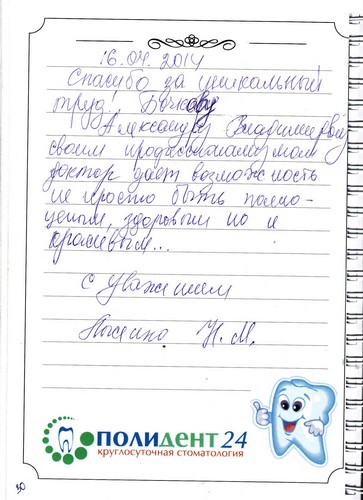 16.04.2014
Спасибо за уникальный
труд! Бочкову
Александру Владимировичу
своим профессионализмом
доктор дает возможность
не просто быть полно-
ценным, здоровым но и
красивым...
С Уважением
Н. М.
ПОЛИДЕНТ 24
круглосуточная стоматология
30